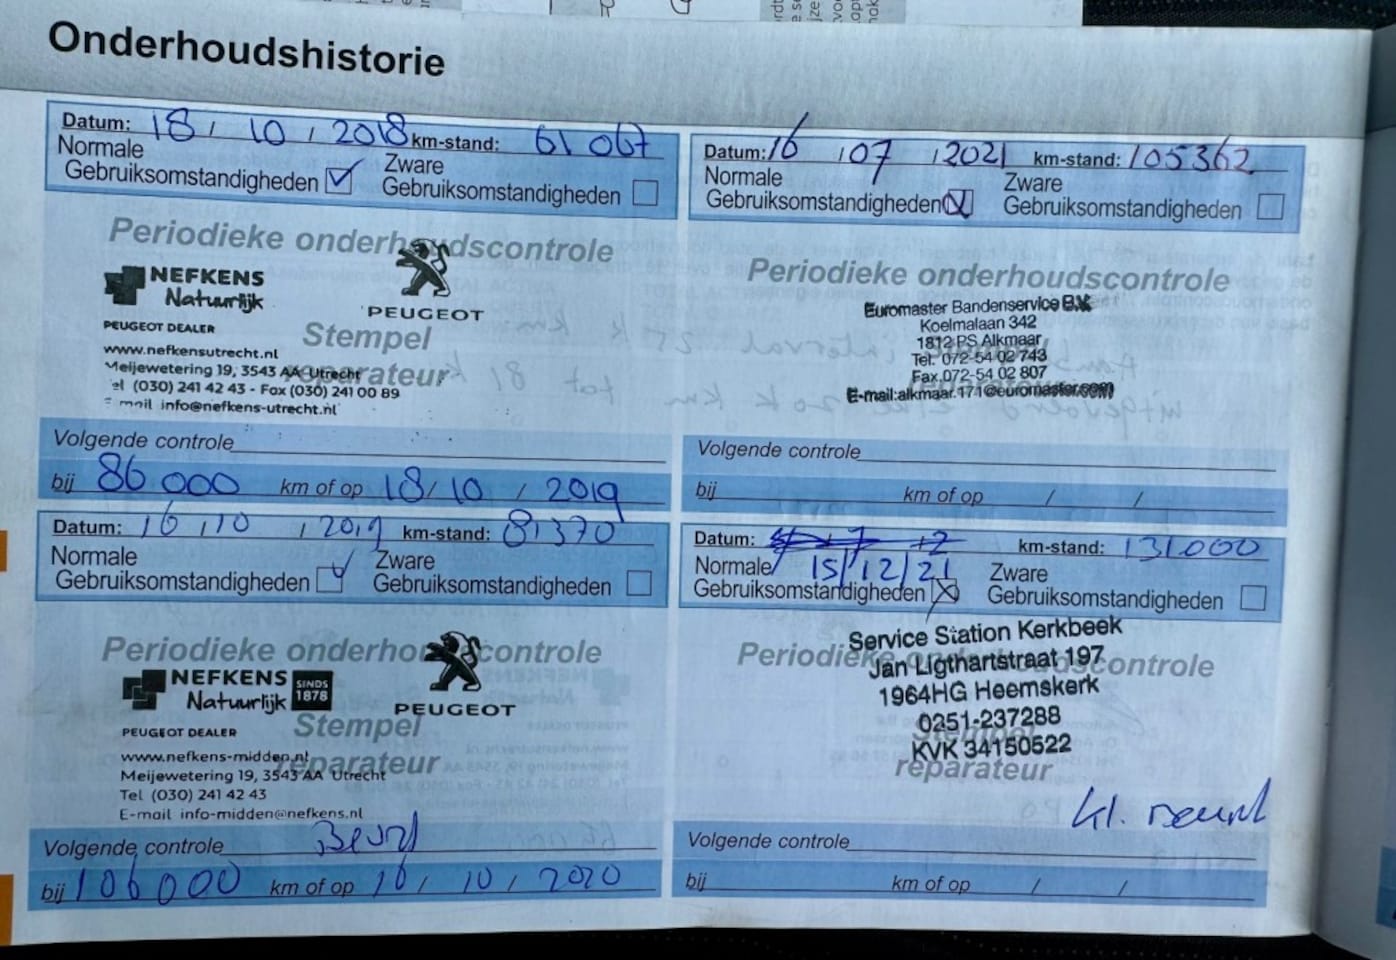 Onderhoudshistorie
Datum: 18 / 10 / 2018 km-stand: 61 067
Normale Gebruiksomstandigheden Zware Gebruiksomstandigheden
Periodieke onderhoudscontrole
NEFKENS
Natuurlijk
PEUGEOT
PEUGEOT DEALER
Stempel
www.nefkensutrecht.nl
Meijewetering 19, 3543 AA Utrecht
reparateur
Tel (030) 241 42 43 - Fax (030) 241 00 89
E-mail info@nefkens-utrecht.nl
Volgende controle
bij 86 000 km of op 18/ 10 / 2019
Datum: 16 / 10 / 2019 km-stand: 81370
Normale Gebruiksomstandigheden Zware Gebruiksomstandigheden
Periodieke onderhoudscontrole
NEFKENS
Natuurlijk
SINDS
1878
PEUGEOT
PEUGEOT DEALER
Stempel
www.nefkens-midden.nl
reparateur
Meijewetering 19, 3543 AA Utrecht
Tel (030) 241 42 43
E-mail info-midden@nefkens.nl
Volgende controle Beurt
bij 106000 km of op 16/ 10 / 2020
Datum: 16 / 07 / 2021 km-stand: 105362
Normale Gebruiksomstandigheden Zware Gebruiksomstandigheden
Periodieke onderhoudscontrole
Euromaster Bandenservice B.V.
Koelmalaan 342
1812 PS Alkmaar
Tel. 072-54 02 743
Fax.072-54 02 807
reparateur
E-mail:alkmaar.171@euromaster.com
Volgende controle
bij km of op / /
Datum: km-stand: 131000
Normale 15/12/21 Zware
Gebruiksomstandigheden Gebruiksomstandigheden
Periodieke onderhoudscontrole
Service Station Kerkbeek
Jan Ligthartstraat 197
1964HG Heemskerk
0251-237288
Stempel
KVK 34150522
reparateur
kl. beurt
Volgende controle
bij km of op / /